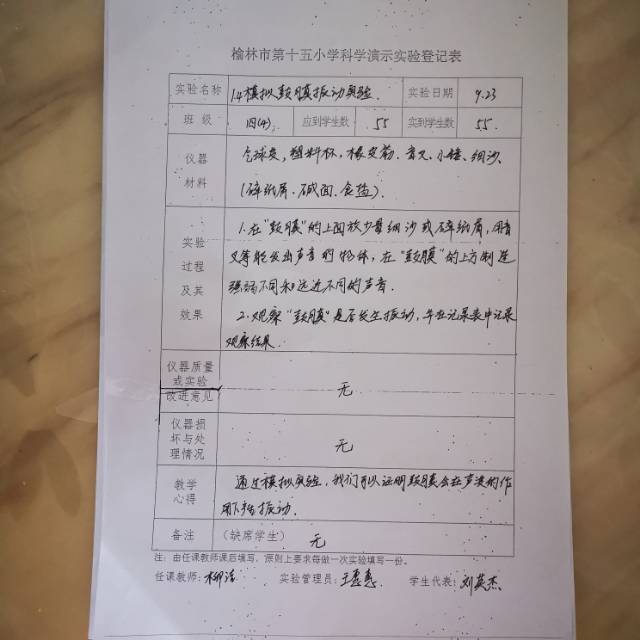 榆林市第十五小学科学演示实验登记表
实验名称 14模拟鼓膜振动实验. 实验日期 9.23
班 级 四(4) 应到学生数 55 实到学生数 55.
仪器材料 气球皮,塑料杯,橡皮筋.音叉,小锤,细沙、
(碎纸屑.碱面.食盐).
实验过程及其效果 1.在"鼓膜"的上面放少量细沙或碎纸屑,用音
叉等能发出声音的物体,在"鼓膜"的上方制造
强弱不同和远近不同的声音.
2.观察"鼓膜"是否发生振动,并在记录表中记录
观察结果.
仪器质量或实验改进意见 无
仪器损坏与处理情况 无
教学心得 通过模拟实验,我们可以证明鼓膜会在声波的作
用下振动.
备注 (缺席学生) 无
注:由任课教师课后填写,原则上要求每做一次实验填写一份。
任课教师:柳洁 实验管理员:王惠惠 学生代表:刘英杰